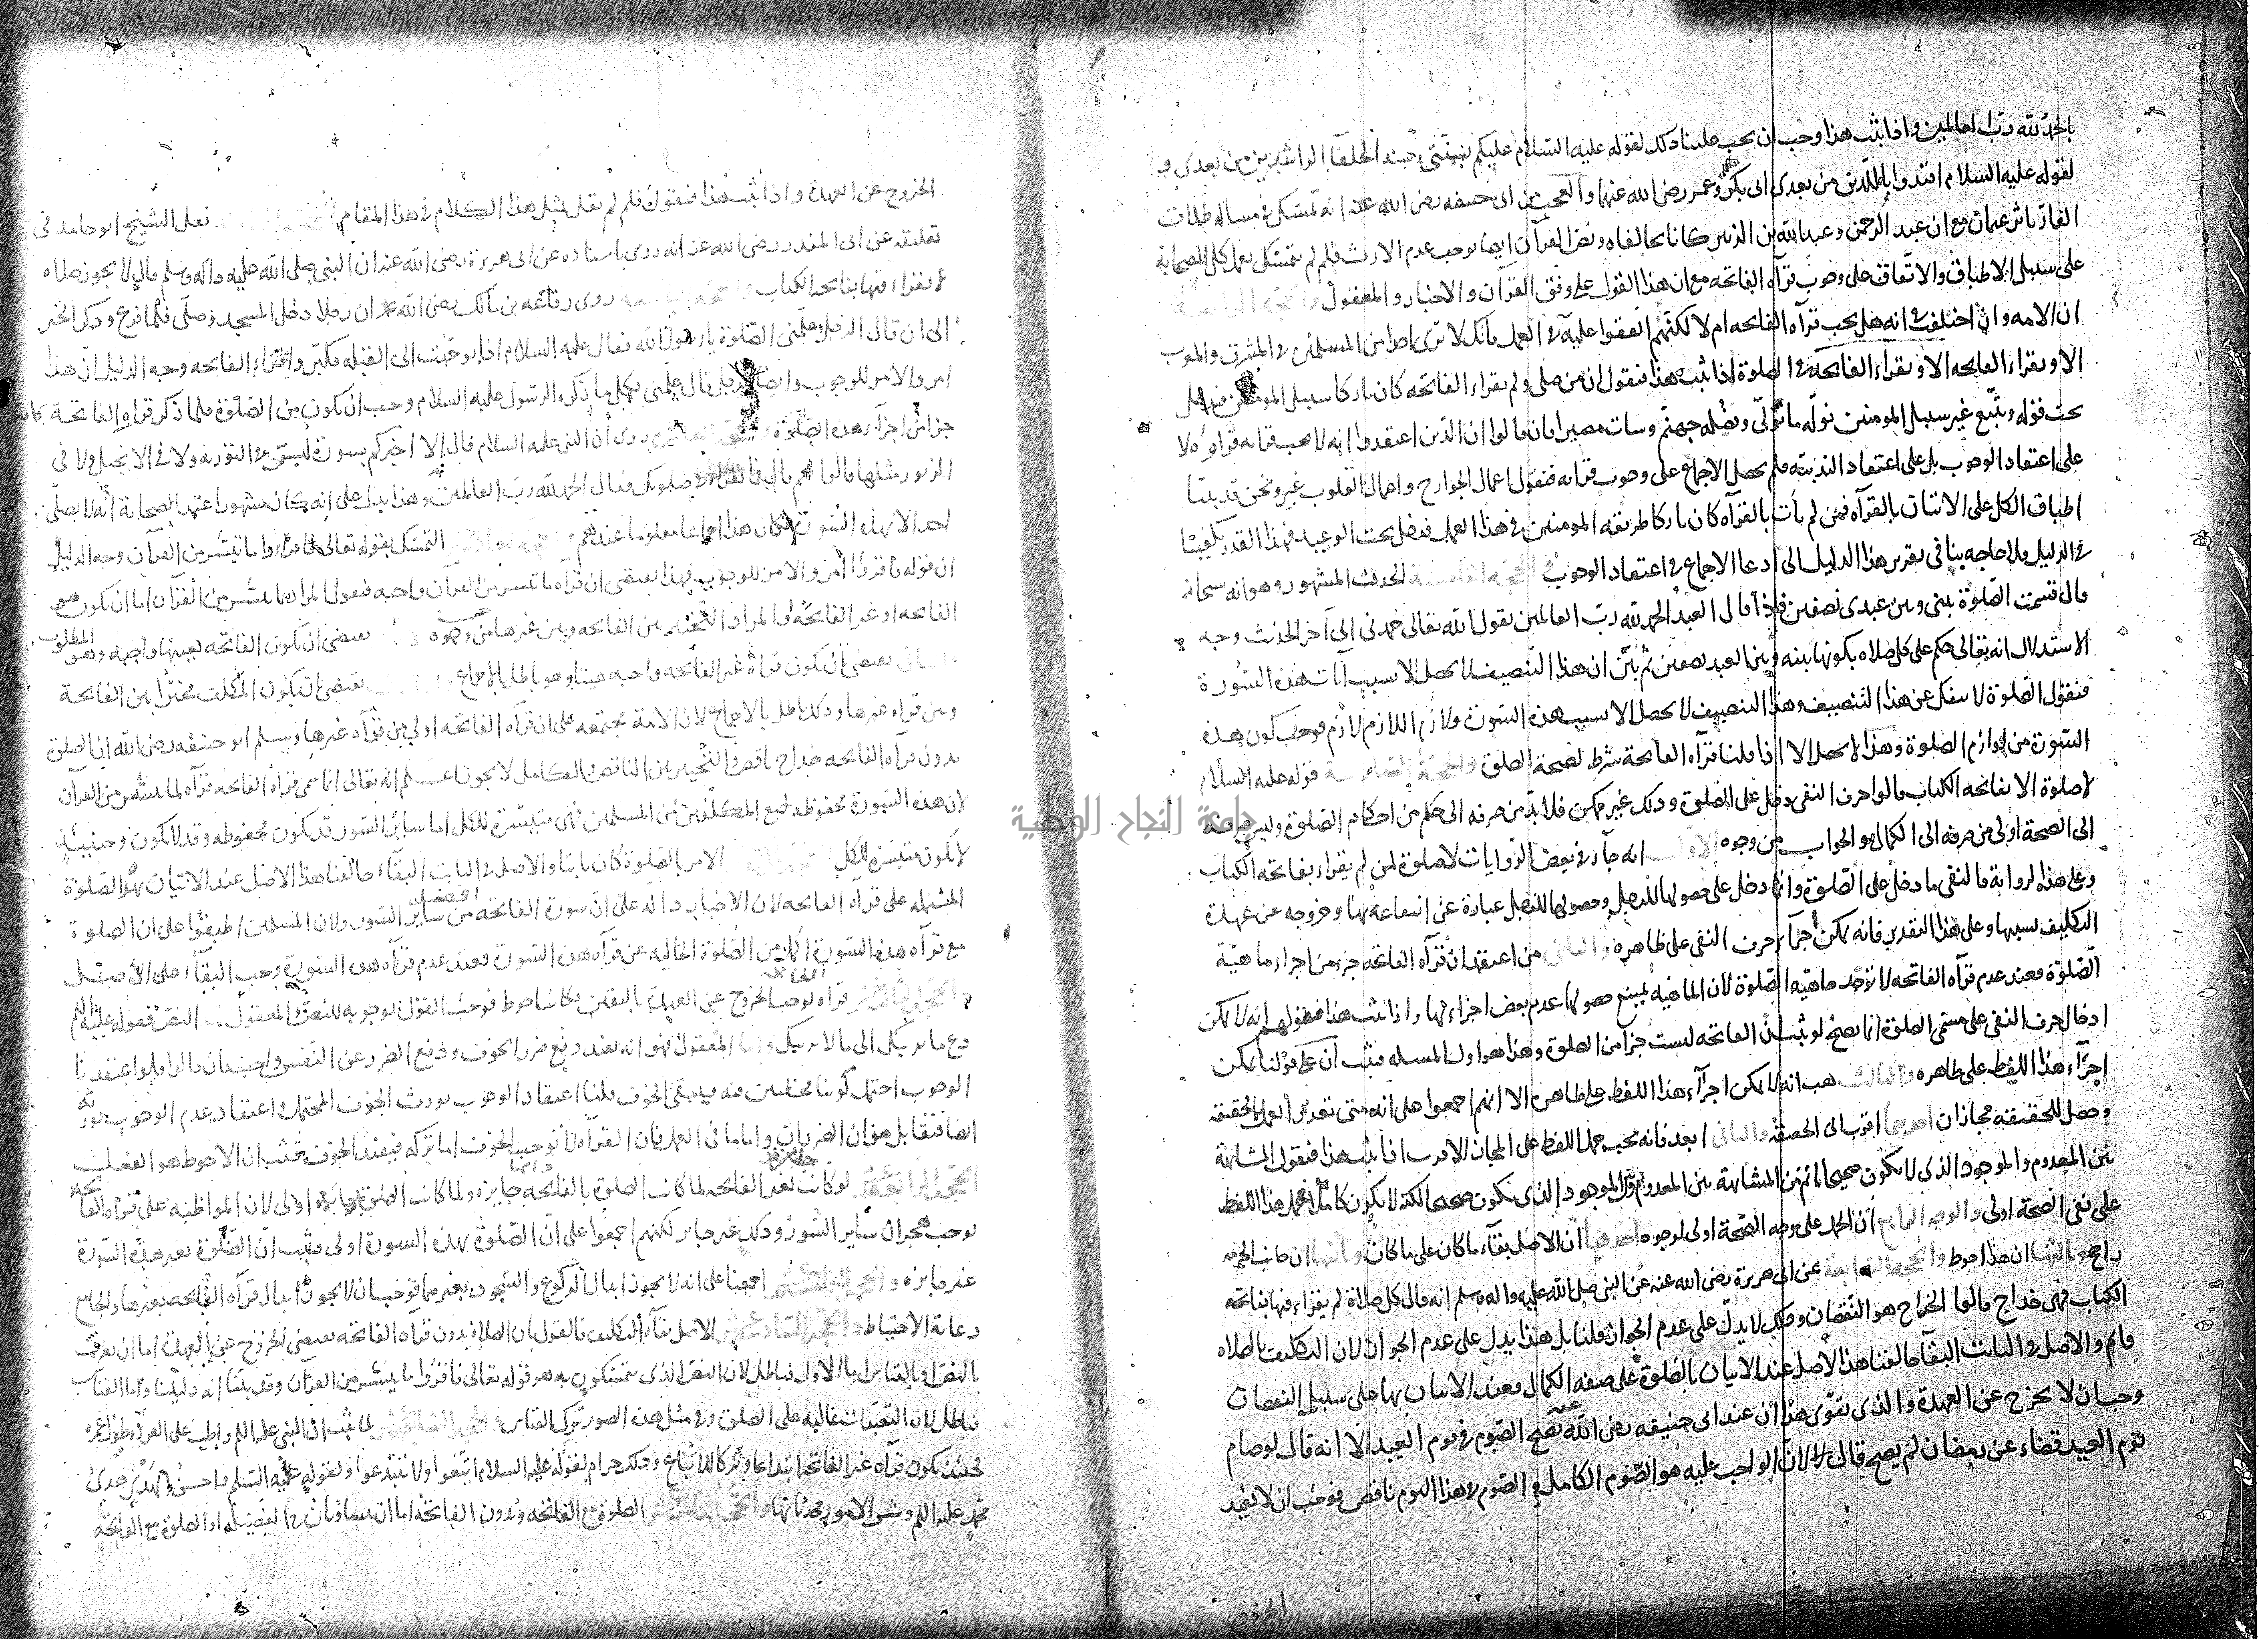 بالحمد لله رب العالمين واذا ثبت هذا وجب ان يجب علينا ذلك لقوله عليه السلام عليكم بسنتي وسنة الخلفاء الراشدين من بعدي و
لقوله عليه السلام اقتدوا باللذين من بعدي ابي بكر وعمر رضي الله عنهما والعجب من ابي حنيفه رضي الله عنه انه تمسك في مساله طلاق
الفار باثر عثمان مع ان عبد الرحمن وعبد الله بن الزبير كانا يخالفاه ونص القرآن ايضا يوجب عدم الارث فلم لم يتمسك بعمل كل الصحابة
على سبيل الاطباق والاتفاق على وجوب قرآه الفاتحه مع ان هذا القول على وفق القرآن والاخبار والمعقول والحجة الرابعة
ان الامه وان اختلفت في انه هل يجب قرآه الفاتحه ام لا لكنهم اتفقوا عليه في العمل فانك لا ترى احدا من المسلمين في المشرق والمغرب
الا ويقراء الفاتحه في الصلوة اذا ثبت هذا فنقول ان من صلى ولم يقراء الفاتحه كان تاركا سبيل المومنين فيدخل
تحت قوله ويتبع غير سبيل المومنين نوله ما تولى ونصله جهنم وساءت مصيرا فان قالوا ان الذين اعتقدوا انه لا يجب قراءته قراوه لا
على اعتقاد الوجوب بل على اعتقاد الندبيه فلم يحصل الاجماع على وجوب قراته فنقول اعمال الجوارح واعمال القلوب غير ونحن قد بينا
اطباق الكل على الاتيان بالقرآه فمن لم يأت بالقرآه كان تاركا طريقه المومنين في هذا العمل فدخل تحت الوعيد فهذا القدر يكفينا
في الدليل ولا حاجه بنا في تقرير هذا الدليل الى ادعا الاجماع في اعتقاد الوجوب الحجة الخامسة الحديث المشهور وهو انه سبحانه
قال قسمت الصلوة بيني وبين عبدي نصفين فاذا قال العبد الحمد لله رب العالمين يقول الله تعالى حمدني الى آخر الحديث وجه
الاستدلال انه تعالى حكم على كل صلاه بكونها بينه وبين العبد نصفين ثم بين ان هذا التنصيف لا يحصل الا بسبب آيات هذه السورة
فنقول الصلوة لا تنفك عن هذا التنصيف وهذا التنصيف لا يحصل الا بسبب هذه السورة ولازم اللازم لازم فوجب كون هذه
السورة من لوازم الصلوة وهذا لا يحصل الا اذا قلنا قرآه الفاتحة شرط لصحة الصلوة والحجة السادسة قوله عليه السلام
لا صلوة الا بفاتحه الكتاب قالوا حرف النفي دخل على الصلوة وذلك غير ممكن فلابد من صرفه الى حكم من احكام الصلوة وليس صرفه
الى الصحة اولى من صرفه الى الكمال والجواب من وجوه الاول انه جآء في بعض الروايات لا صلوة لمن لم يقراء بفاتحه الكتاب
وعلى هذه الرواية فالنفي ما دخل على الصلوة وانما دخل على حصولها للرجل وحصولها للرجل عبارة عن انتفاعه بها وخروجه عن عهدة
التكليف بسببها وعلى هذا التقدير فانه يمكن اجرآء حرف النفي على ظاهره والثاني من اعتقد ان قرآه الفاتحه جزء من اجزاء ماهية
الصلوة فعند عدم قرآه الفاتحه لا توجد ماهية الصلوة لان الماهية يمتنع حصولها عدم بعض اجزائها واذا ثبت هذا فقولهم انه لا يمكن
ادخال حرف النفي على مسمى الصلوة انما يصح لو ثبت ان الفاتحه ليست جزا من الصلوة وهذا هو اول المسله فثبت ان على قولنا يمكن
اجرآء هذا اللفظ على ظاهره والثالث هب انه لا يمكن اجرآء هذا اللفظ على ظاهره الا انهم اجمعوا على انه متى تعذر العمل بالحقيقه
وحصل للحقيقه مجازان احدهما اقرب الى الحقيقة والثاني ابعد فانه يجب حمل اللفظ على المجاز الاقرب اذا ثبت هذا فنقول المشابهة
بين المعدوم والموجود الذي لا يكون صحيحا اتم من المشابهة بين المعدوم وبين الموجود الذي يكون صحيحا لكنه لا يكون كاملا فحمل هذا اللفظ
على نفي الصحة اولى والوجه الرابع ان الحمل على وجه الصحة اولى لوجوه احدها ان الاصل بقآء ما كان على ما كان وثانيها ان جانب الحرمه
راجح وثالثها ان هذا احوط والحجة السابعة عن ابي هريرة رضي الله عنه عن النبي صلى الله عليه واله وسلم انه قال كل صلاة لم يقراء فيها بفاتحه
الكتاب فهي خداج قالوا الخداج هو النقصان وذلك لا يدل على عدم الجواز قلنا بل هذا يدل على عدم الجواز لان التكليف بالصلاه
قائم والاصل في الثابت البقآء خالفنا هذا الاصل عند الاتيان بالصلوة على صفه الكمال فعند الاتيان بها على سبيل النقصان
وجب ان لا يخرج عن العهدة والذي يقوي هذا ان عند ابي حنيفه رضي الله عنه يصح الصوم في يوم العيد الا انه قال لو صام
يوم العيد قضاء عن رمضان لم يصح قال لان الواجب عليه هو الصوم الكامل والصوم في هذا اليوم ناقص فوجب ان لا يفيد
الخروج
الخروج عن العهدة واذا ثبت هذا فنقول فلم لم تقل بمثل هذا الكلام في هذا المقام الحجة الثامنة نقل الشيخ ابو حامد في
تعليقه عن ابن المنذر رضي الله عنه انه روى باسناده عن ابي هريرة رضي الله عنه ان النبي صلى الله عليه واله وسلم قال لا يجوز صلاه
لا يقراء فيها بفاتحه الكتاب والحجة التاسعه روى رفاعه بن مالك رضي الله عنه ان رجلا دخل المسجد وصلى فلما فرغ وذكر الخبر
الى ان قال الرجل علمني الصلوة يا رسول الله فقال عليه السلام اذا توجهت الى القبله فكبر واقراء الفاتحه وجه الدليل ان هذا
امر والامر للوجوب وايضا الرجل قال علمني فكل ما ذكره الرسول عليه السلام وجب ان يكون من الصلوة فلما ذكر قراه الفاتحة كانت
جزا من اجزآء هذه الصلوة والحجة العاشرة روى ان النبي عليه السلام قال الا اخبركم بسورة ليس في التورية ولا في الانجيل ولا في
الزبور مثلها قالوا نعم قال فما تقراء في صلوتك فقال الحمد لله رب العالمين وهذا يدل على انه كان مشهورا عند الصحابة انه لا يصلي
احد الا بهذه السورة فكان هذا اجماعا معلوما عندهم والحجة الحادية التمسك بقوله تعالى فاقراوا ما تيسر من القرآن وجه الدليل
ان قوله فاقروا امر والامر للوجوب فهذا يقتضي ان قرآه ما تيسر من القرآن واجبه فنقول المراد بما تيسر من القرآن اما ان يكون هو
الفاتحه او غير الفاتحة او المراد التخيير بين الفاتحه وبين غيرها من وجوه يقتضي ان يكون الفاتحة بعينها واجبه وهو المطلوب
والثاني يقتضي ان يكون قراة غير الفاتحه واجبه عينا وهو باطل بالاجماع يقتضي ان يكون المكلف مخيرا بين الفاتحة
وبين قراه غيرها وذلك باطل بالاجماع لان الامة مجتمعه على ان قرآه الفاتحه اولى من قرآه غيرها وسلم ابو حنيفه رضي الله ان الصلوة
بدون قرآه الفاتحه خداج ناقص والتخيير بين الناقص والكامل لا يجوز واعلم انه تعالى انما سمى قراة الفاتحه قرآه لما تيسر من القرآن
لان هذه السورة محفوظه لجميع المكلفين من المسلمين فهي متيسرة للكل اما سائر السور قد يكون محفوظه وقد لا يكون وحينيذ
لا يكون متيسره للكل الامر بالصلوة كان ثابتا والاصل في الثابت البقآء خالفنا هذا الاصل عند الاتيان بهذه الصلوة
المشتمله على قرآه الفاتحه لان الاخبار داله على ان سورة الفاتحة افضل من ساير السور ولان المسلمين اطبقوا على ان الصلوة
مع قرآه هذه السورة اكمل من الصلوة الخاليه عن قرآه هذه السورة فعند عدم قرآه هذه السورة وجب البقآء على الاصل
والحجة الثالثة عشر قراه الفاتحه توجب الخروج عن العهدة باليقين فكانت احوط فوجب القول بوجوبه للنص والمعقول النص فقوله عليه السلم
دع ما يريبك الى ما لا يريبك واما المعقول فهو انه يفيد دفع ضرر الخوف ودفع الضرر عن النفس واجب فان قالوا فلو اعتقدنا
الوجوب احتمل كوننا مخطئين فيه فيبقى الخوف قلنا اعتقاد الوجوب يورث الخوف المحتمل واعتقاد عدم الوجوب يورثه
ايضا فتقابل هذان الضربان واما في العمل فان القرآه لا توجب الخوف اما تركه فيفيد الخوف فثبت ان الاحوط هو العمل
الحجة الرابعة عشر لو كانت بغير الفاتحه جائزة لما كانت الصلوة بالفاتحه جايزه ولما كانت الصلوة جائزة اولى لان المواظبه على قراه الفاتحه
توجب هجران ساير السور وذلك غير جايز لكنهم اجمعوا على ان الصلوة بهذه السورة اولى فثبت ان الصلوة بغير هذه السورة
غير جايزه والحجة الخامسة عشر اجمعنا على انه لا يجوز ابدال الركوع والسجود بغيرهما فوجب ان لا يجوز ابدال قرآه الفاتحه بغيرها والجامع
رعاية الاحتياط والحجة السادسة عشر الاصل بقآء التكليف فالقول بان الصلاة بدون قراه الفاتحه يقتضي الخروج عن العهدة اما ان يعرف
بالنص او بالقياس اما الاول فباطل لان النص الذي يتمسكون به هو قوله تعالى فاقروا ما تيسر من القرآن وقد بينا انه دليلنا واما القياس
فباطل لان التعبدات غالبه على الصلوة وفي مثل هذه الصور يترك القياس والحجة السابعة عشر لما ثبت ان النبي عليه السلم واظب على القرآه طول عمره
فحينئذ يكون قرآه غير الفاتحه ابتداعا وتركا للاتباع وذلك حرام لقوله عليه السلام اتبعوا ولا تبتدعوا ولقوله عليه السلم واحسن الهدي هدي
محمد عليه السلم وشر الامور محدثاتها والحجة الثامنة عشر الصلوة مع الفاتحه وبدون الفاتحه اما ان يتساويان في الفضيله او الصلوة مع الفاتحة
جامعة النجاح الوطنية